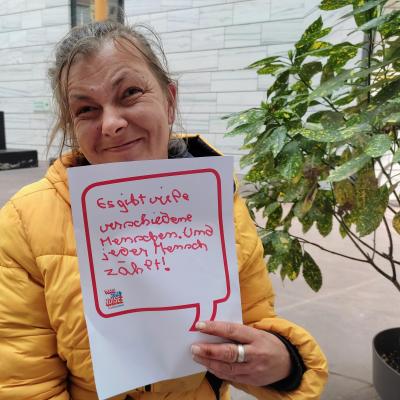 Es gibt viele
verschiedene
Menschen. Und
jeder Mensch
zählt!